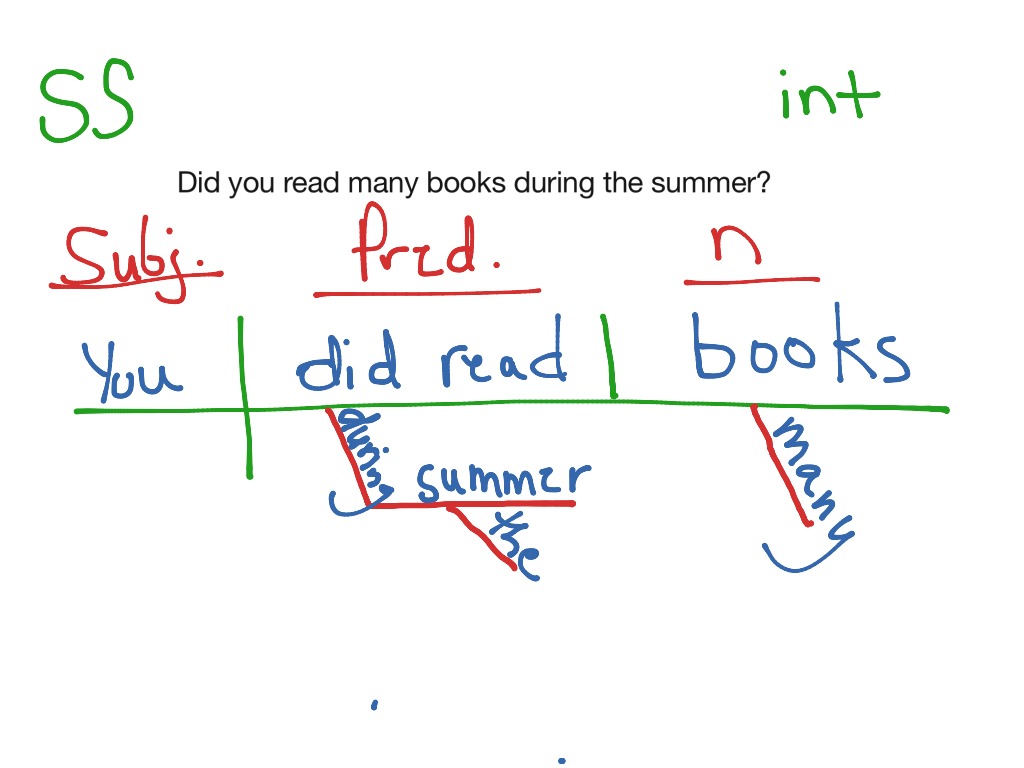 SS int
Did you read many books during the summer?
Subj. Pred. n
You did read books
during
summer
the
many